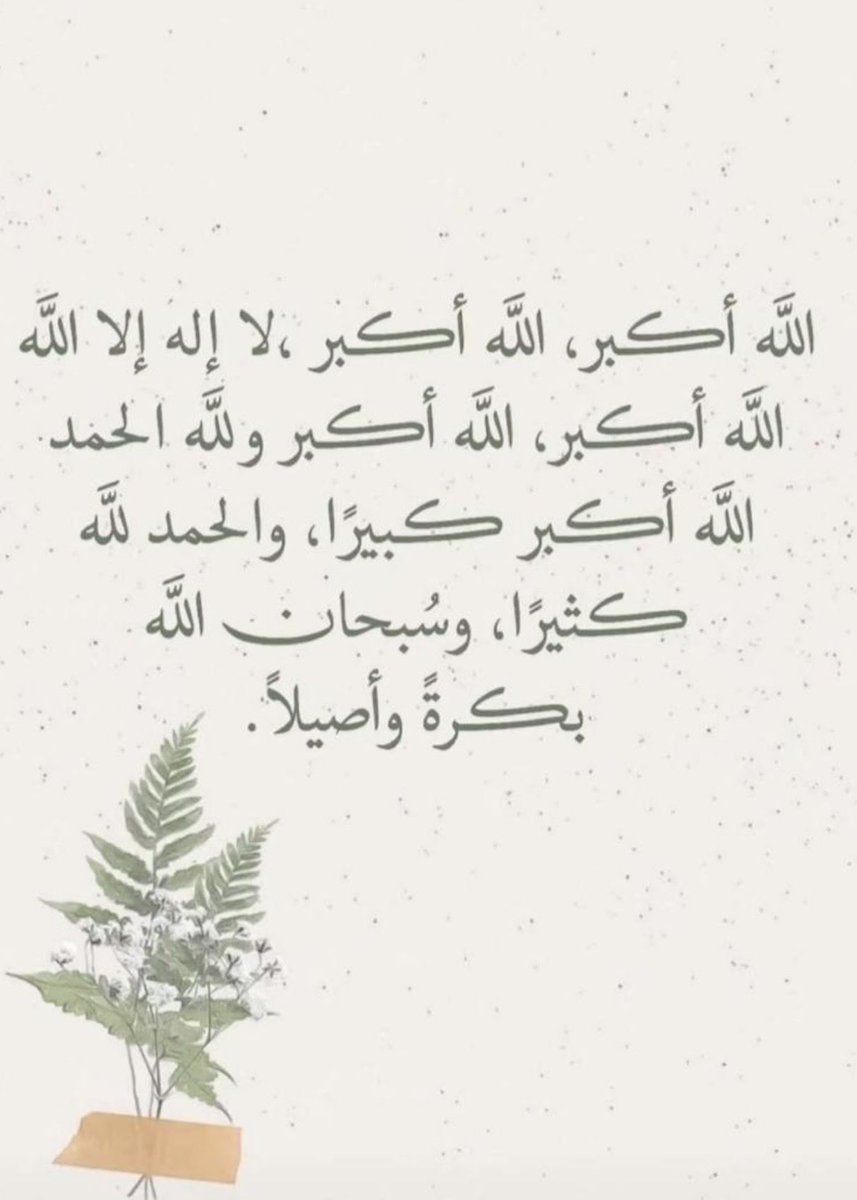 اللَّه أكبر، اللَّه أكبر ،لا إله إلا اللَّه
اللَّه أكبر، اللَّه أكبر وللَّه الحمد
اللَّه أكبر كبيرًا، والحمد للَّه
كثيرًا، وسُبحان اللَّه
بكرةً وأصيلاً.